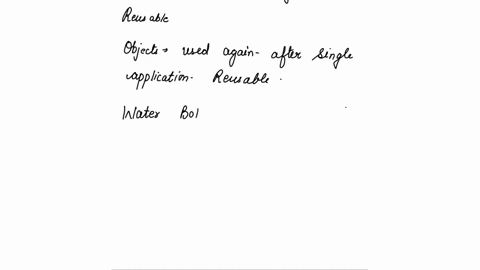 Reusable
Objects → used again - after single
application. Reusable.
Water Bot